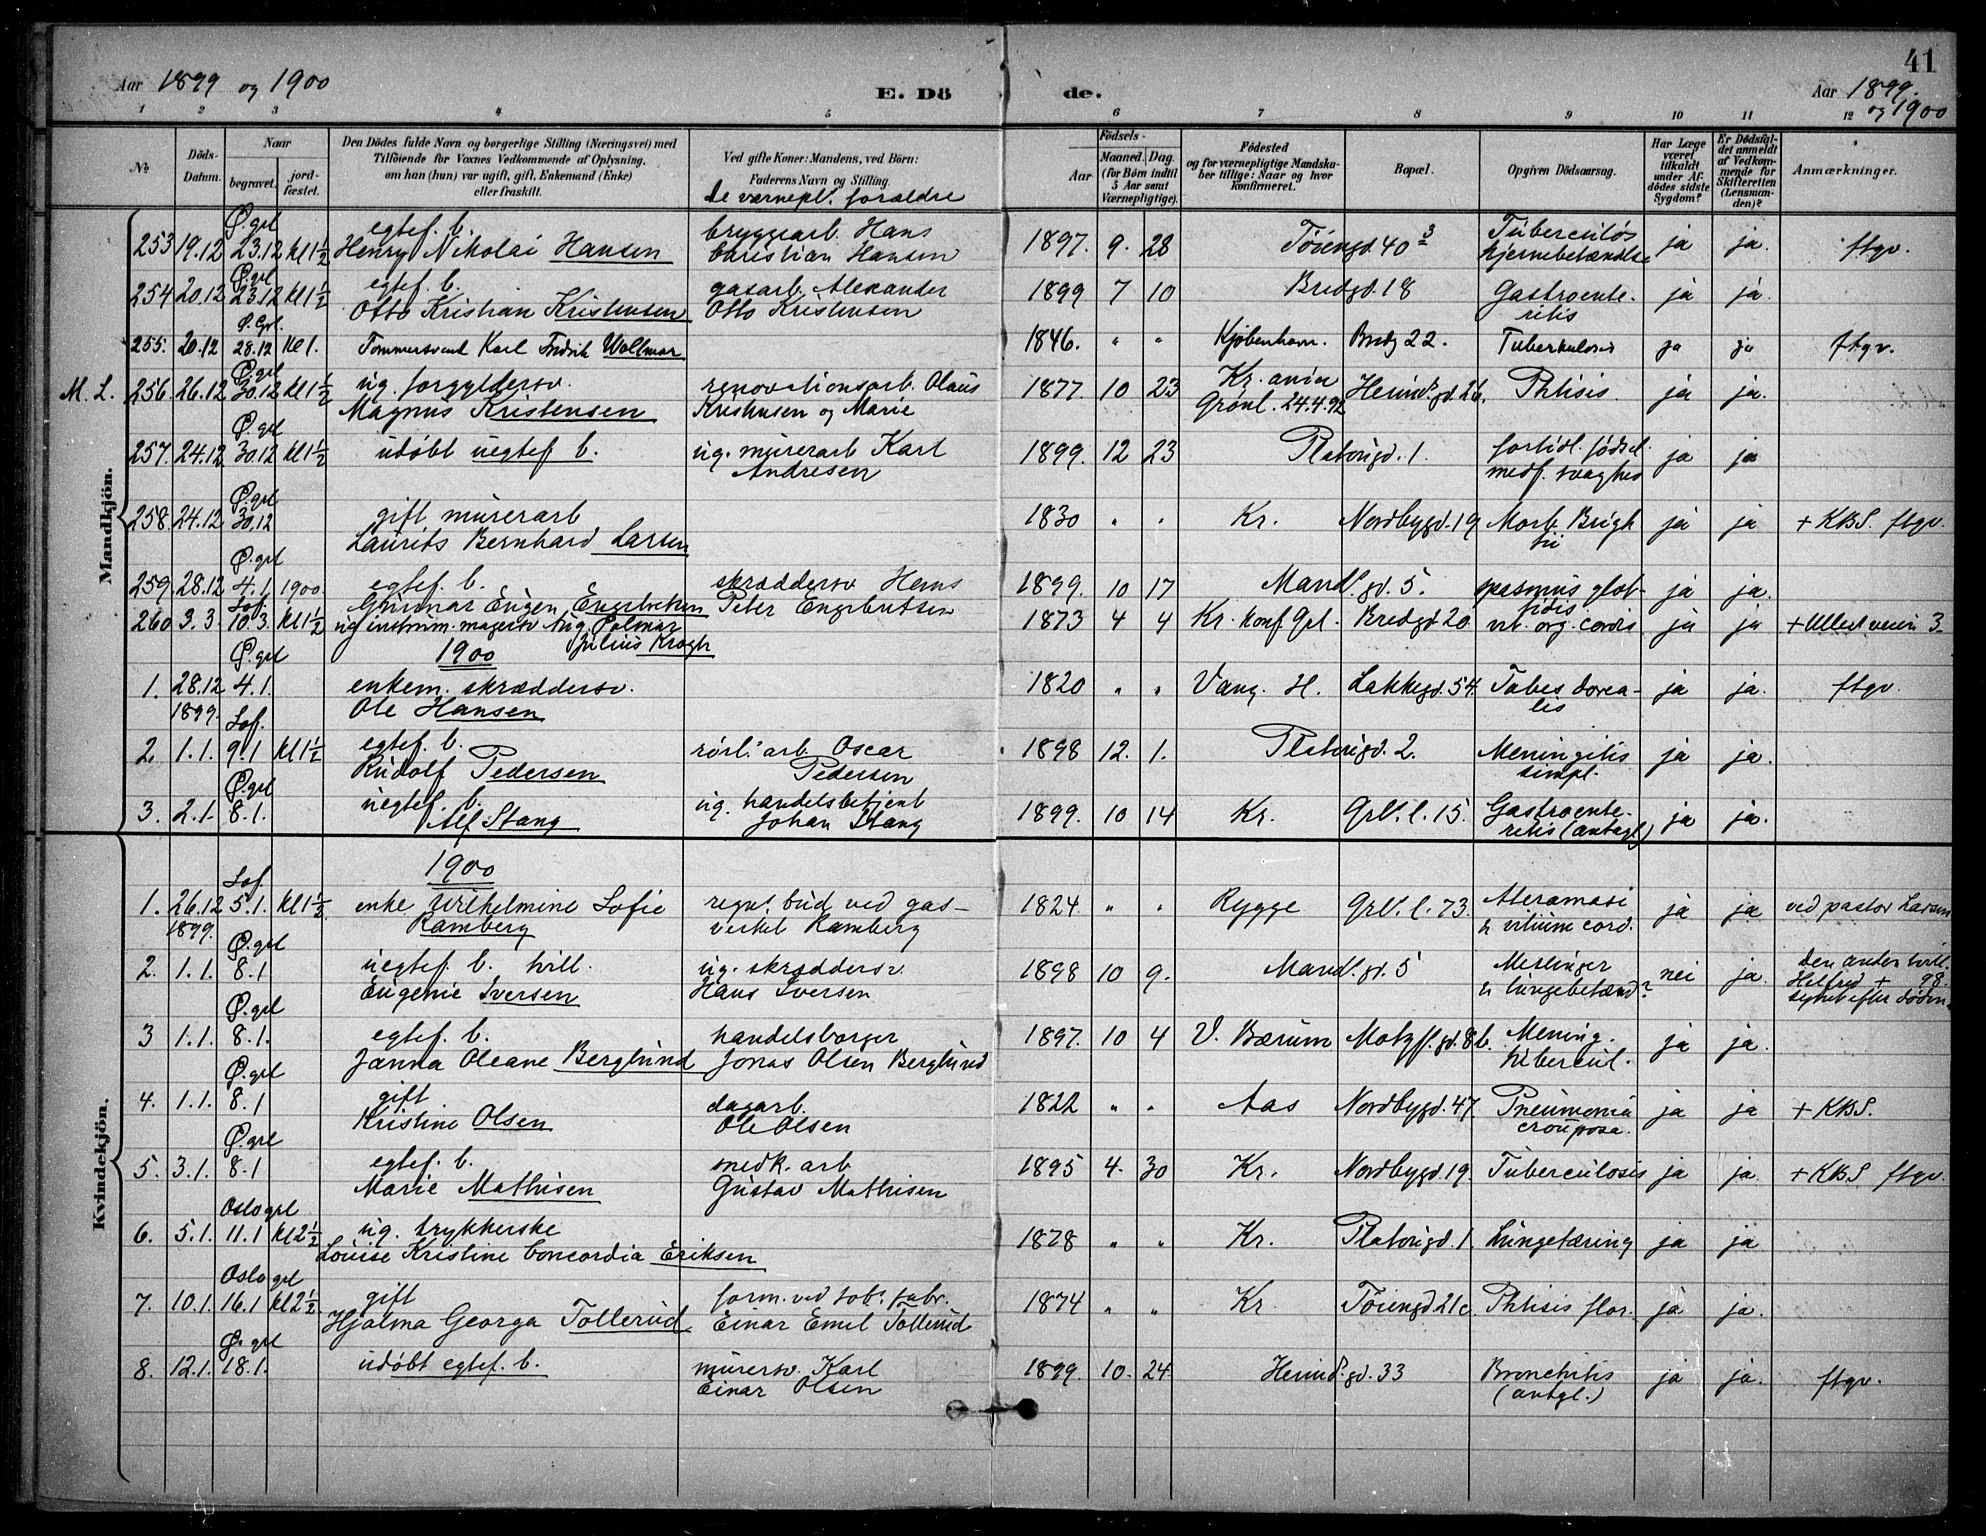 41
Aar 1899 og 1900 E. Dö de. Aar 1899. og 1900
1 2 3 4 5 6 7 8 9 10 11 12
№ Döds-Datum. Naar begravet. jord-fæstet.
Den Dödes fulde Navn og borgerlige Stilling (Næringsvei) med
Tilföiende for Voxnes Vedkommende af Oplysning,
om han (hun) var ugift, gift, Enkemand (Enke)
eller fraskilt.
Ved gifte Koner: Mandens, ved Börn:
Faderens Navn og Stilling
De værnepl. forældre
Födsels-
Aar Maaned. Dag.
(for Börn indtil
5 Aar samt
Værnepligtige).
Födested
og for værnepligtige Mandska-
ber tillige: Naar og hvor
konfirmeret.
Bopæl.
Opgiven Dödsaarsag.
Har Læge
været
tilkaldt
under Af-
dödes sidste
Sygdom?
Er Dödsfal-
det anmeldt
af Vedkom-
mende for
Skifteretten
(Lensman-
den)?
Anmærkninger.
Mandkjön.
Ø.grl egtef. b. bryggearb. Hans Tuberculøs
253 19.12 23.12 kl 1½ Henry Nikolai Hansen Christian Hansen 1897. 9. 28 Töiengd 40 3 hjernebetændelse ja ja. ftgv.
Ø.grl egtef. b. gasarb. Alexander
254 20.12 23.12 kl 1½ Otto Kristian Kristensen Otto Kristensen 1899 7 10 Bredgd. 18 Gastroente-ritis ja ja.
Ø.Grl.
255. 20.12 28.12 kl 1. Tømmersvend Karl Fredrik Wollmar 1846. " " Kjøbenhavn. Bredg 22. Tuberkulosis ja ja ftgv.
Ø.grl ug. forgyldersv. renovationsarb. Olaus Kr.
M. L. 256. 26.12 30.12 kl 1½ Magnus Kristensen Kristensen og Marie 1877. 10 23 Grönl. 24.4.92 Heimd.gd. 26. Phtisis. ja ja.
Ø.grl
257. 24.12 30.12 kl 1½ udøbt uegtef b. ug. murerarb Karl Andresen 1899. 12 23 Platougd. 1. fortidl. fødsel medf. svaghed ja ja
Ø.grl gift murerarb
258. 24.12 30.12 Laurits Bernhard Larsen 1830 " " Kr. Nordbygd. 19 Morb. Brigh tii ja ja + KBS. ftgv.
Ø.grl
259. 28.12 4.1. 1900. egtef. b. skræddersv Hans 1899. 10 17 Mandl.gd. 5. spasmus glot-tidis ja ja.
Gunnar Eugen Engebretsen Peter Engebretsen
Sof.
260 3.3. 10.3. kl 1½ ug instrum. magersv Aug. Palmar Julius Krogh 1873 4 4 Kr. konf Grl. Bredgd 20 vit. org. cordis ja ja + Ullevlveien 3
1900
Ø.grl
1. 28.12 1899. 4.1. enkem. skræddersv. Ole Hansen 1820 " " Vang. H. Lakkegd. 54. Tabes dorsa-lis ja ja. ftgv.
Sof.
2. 1.1. 9.1 kl 1½ egtef. b. Rudolf Pedersen rørl. arb Oscar Pedersen 1898 12. 1. Platougd. 2. Meningitis simpl. ja ja.
Ø.grl
3. 2.1. 8.1. uegtef. b. Alf Stang ug. handelsbetjent Johan Stang 1899. 10 14 Kr. Grl. l. 15. Gastroente-ritis (antagl) ja ja.
Kvindekjön.
1900
Sof.
1. 26.12 1899. 5.1. kl 1½ enke Wilhelmine Sofie Ramberg regn. bud ved gas-verket Ramberg 1824. " " Rygge Grl. l. 73. Ateramasi & vitium cord. ja ja ved pastor Larsen
Ø.grl
2. 1.1. 8.1 uegtef. b. tvill. Eugenie Iversen ug. skræddersv. Hans Iversen 1898 10 9. Mandl.gd. 5 Meslinger & lungebetænd? nei ja. Den anden tvill. Helfred + 98.
Ø.grl
3 1.1. 8.1. egtef. b. Janna Oleane Berglund handelsborger Jonas Olsen Berglund 1897. 10 4 V. Bærum Motzf.gd. 8b. Mening. tubercul. ja ja.
Ø.grl
4. 1.1. 8.1 gift Kristine Olsen dagarb. Ole Olsen 1822 " " Aas Nordbygd. 47. Pneumonia crouposa. ja ja + KBS.
Ø.grl
5. 3.1. 8.1 egtef. b. Marie Mathisen snedk. arb Gustav Mathisen 1895 4. 30 Kr. Nordbygd 19. Tuberculosis ja ja. + KBS. ftgv.
Oslo grl
6. 5.1. 11.1 kl 2½ ug. trykkerske Louise Kristine Concordia Eriksen 1878 " " Kr. Platougd. 1. Lungetæring ja ja
Oslo grl
7. 10.1. 16.1 kl 2½ gift Hjalma Georga Tollerud form. ved tob. fabr. Einar Emil Tollerud 1874 " " Kr. Töiengd 21c. Phtisis flor. ja ja.
Ø.grl
8. 12.1. 18.1. udøbt egtef. b. murersv. Karl Einar Olsen 1899. 10. 24. Heimd.gd. 33 Bronchitis (antgl.) ja ja. ftgv.